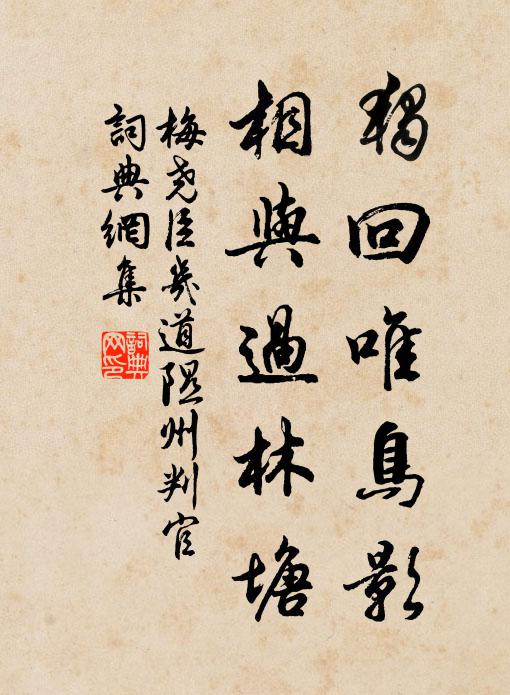 獨回唯鳥影
相與過林塘
梅堯臣幾道隰州判官
詞典網集
詞典
网印